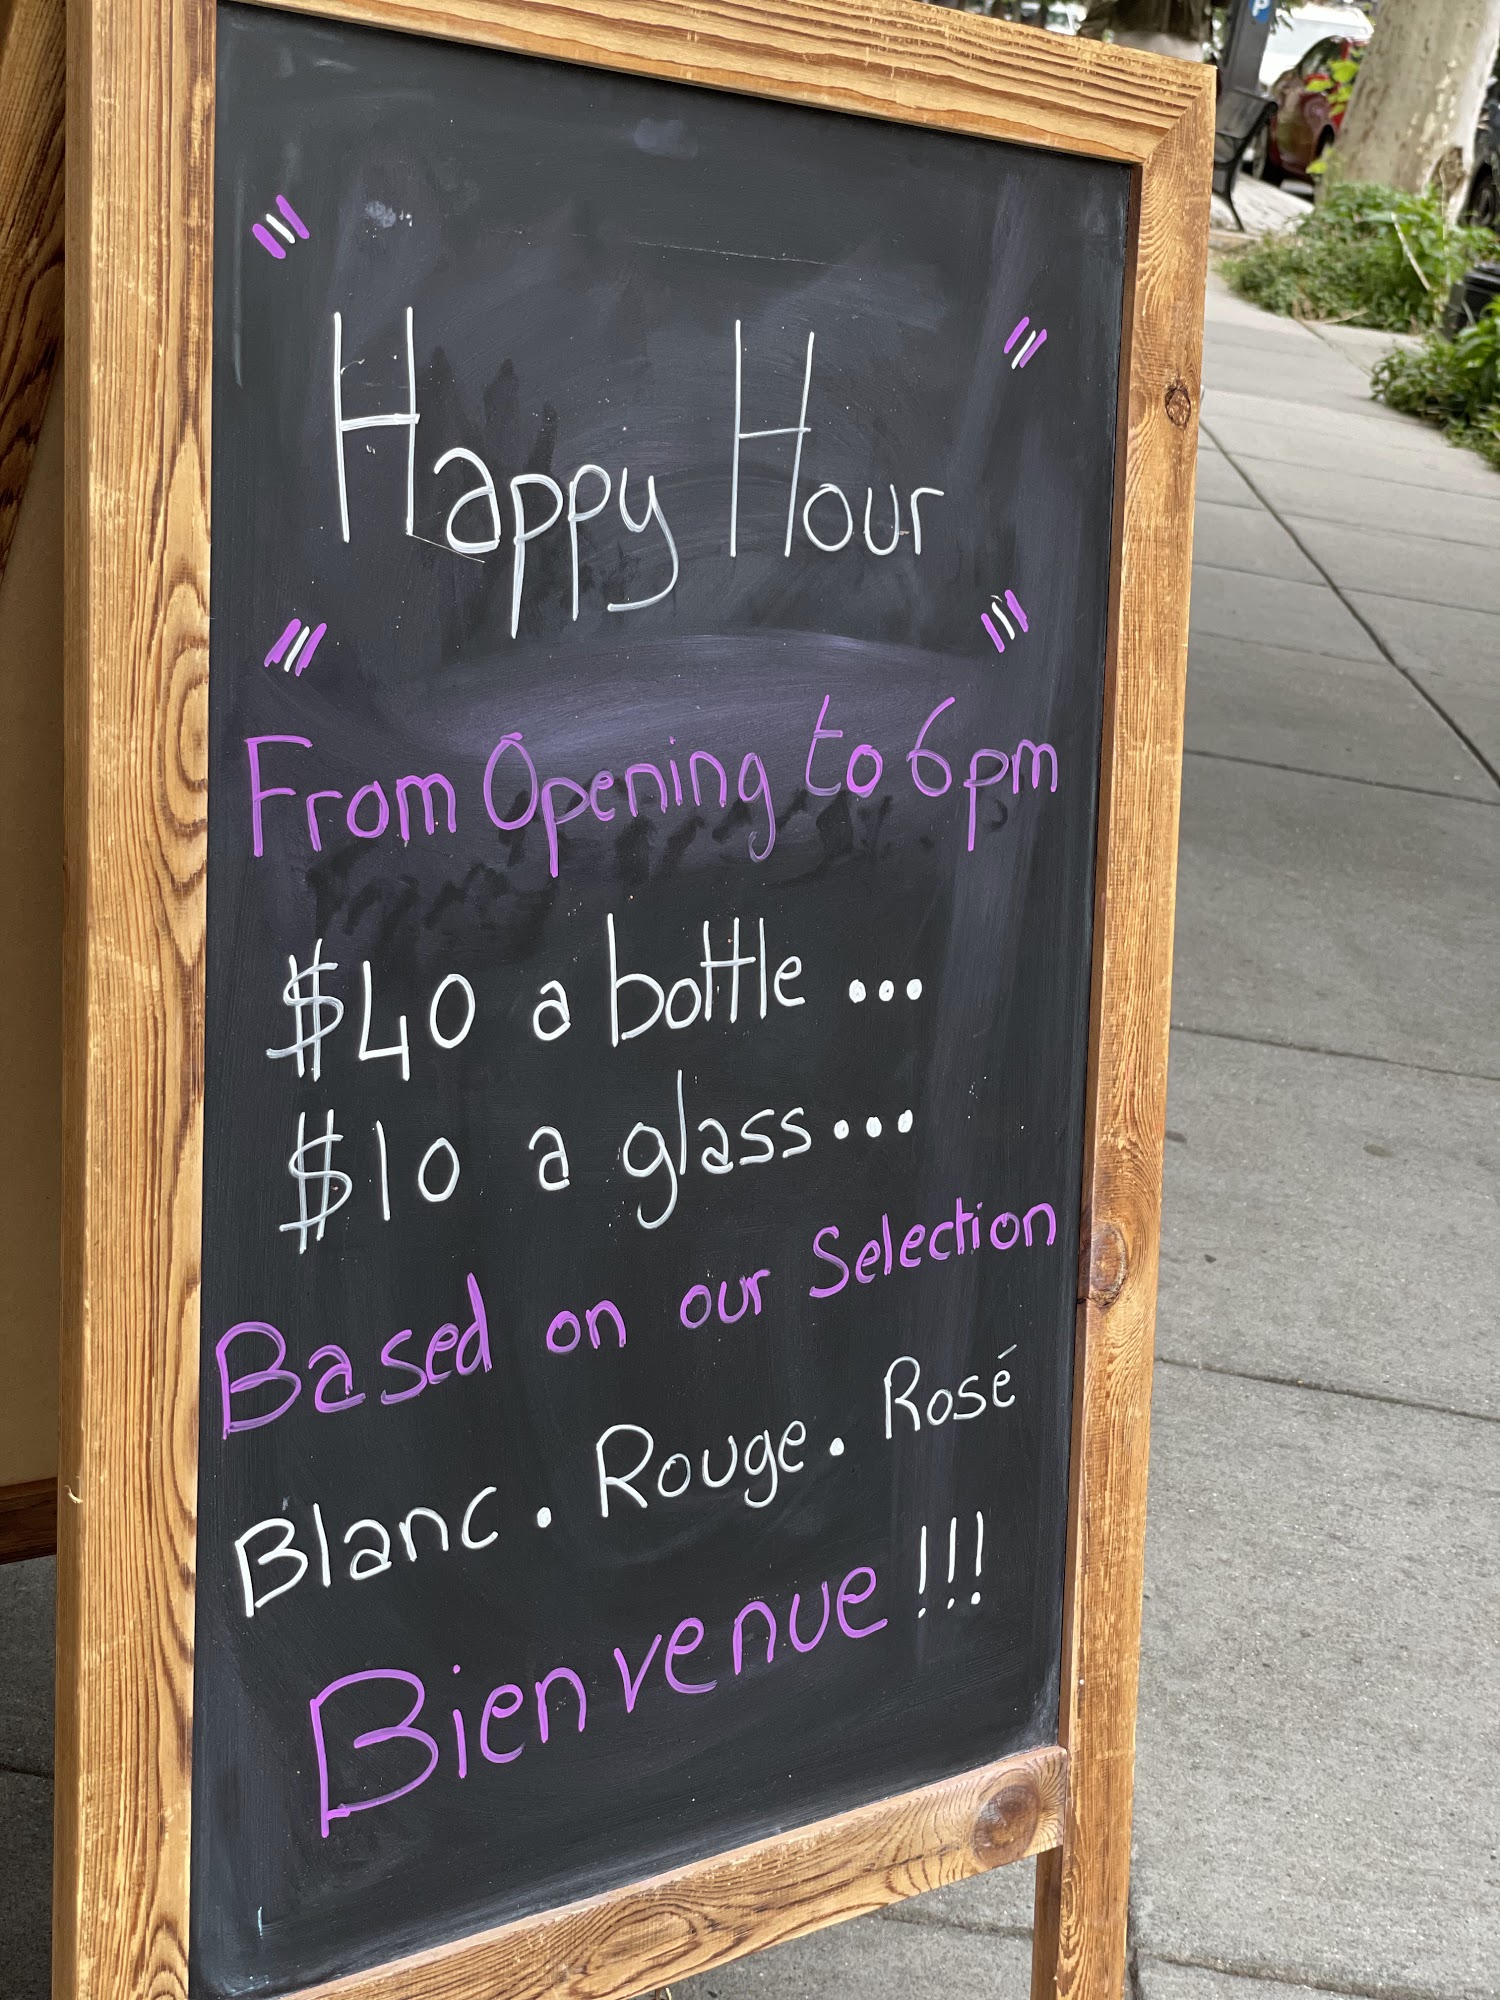 P
Happy Hour
From Opening to 6pm
$40 a bottle...
$10 a glass...
Based on our Selection
Blanc. Rouge. Rosé
Bienvenue!!!